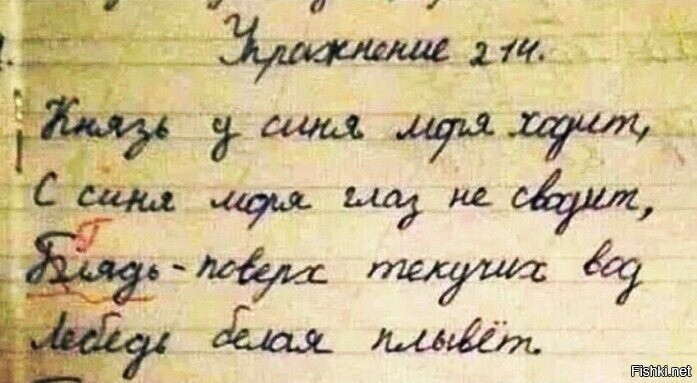 Упражнение 214.
Князь у синя моря ходит,
С синя моря глаз не сводит,
Блядь - поверх текучих вод
Лебедь белая плывёт.
Fishki.net